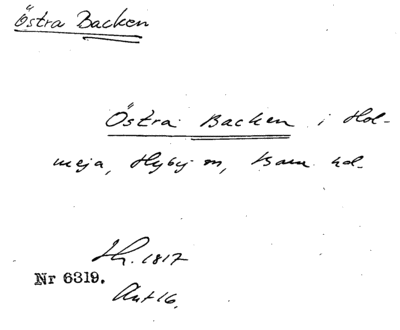 Östra Backen
Östra Backen i Hol-
meja, Hyby sn, Bara hd.
Th. 1817
Nr 6319.
Ant 16.